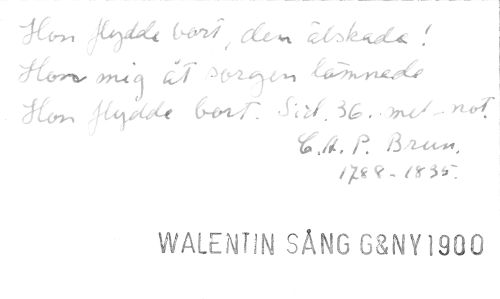 Hon flydde bort, den älskada!
Hon mig åt sorgen lämnade
Hon flydde bort. Sid. 36. med not.
C.A.P. Brun.
1788-1835.
WALENTIN SÅNG G&NY 1900